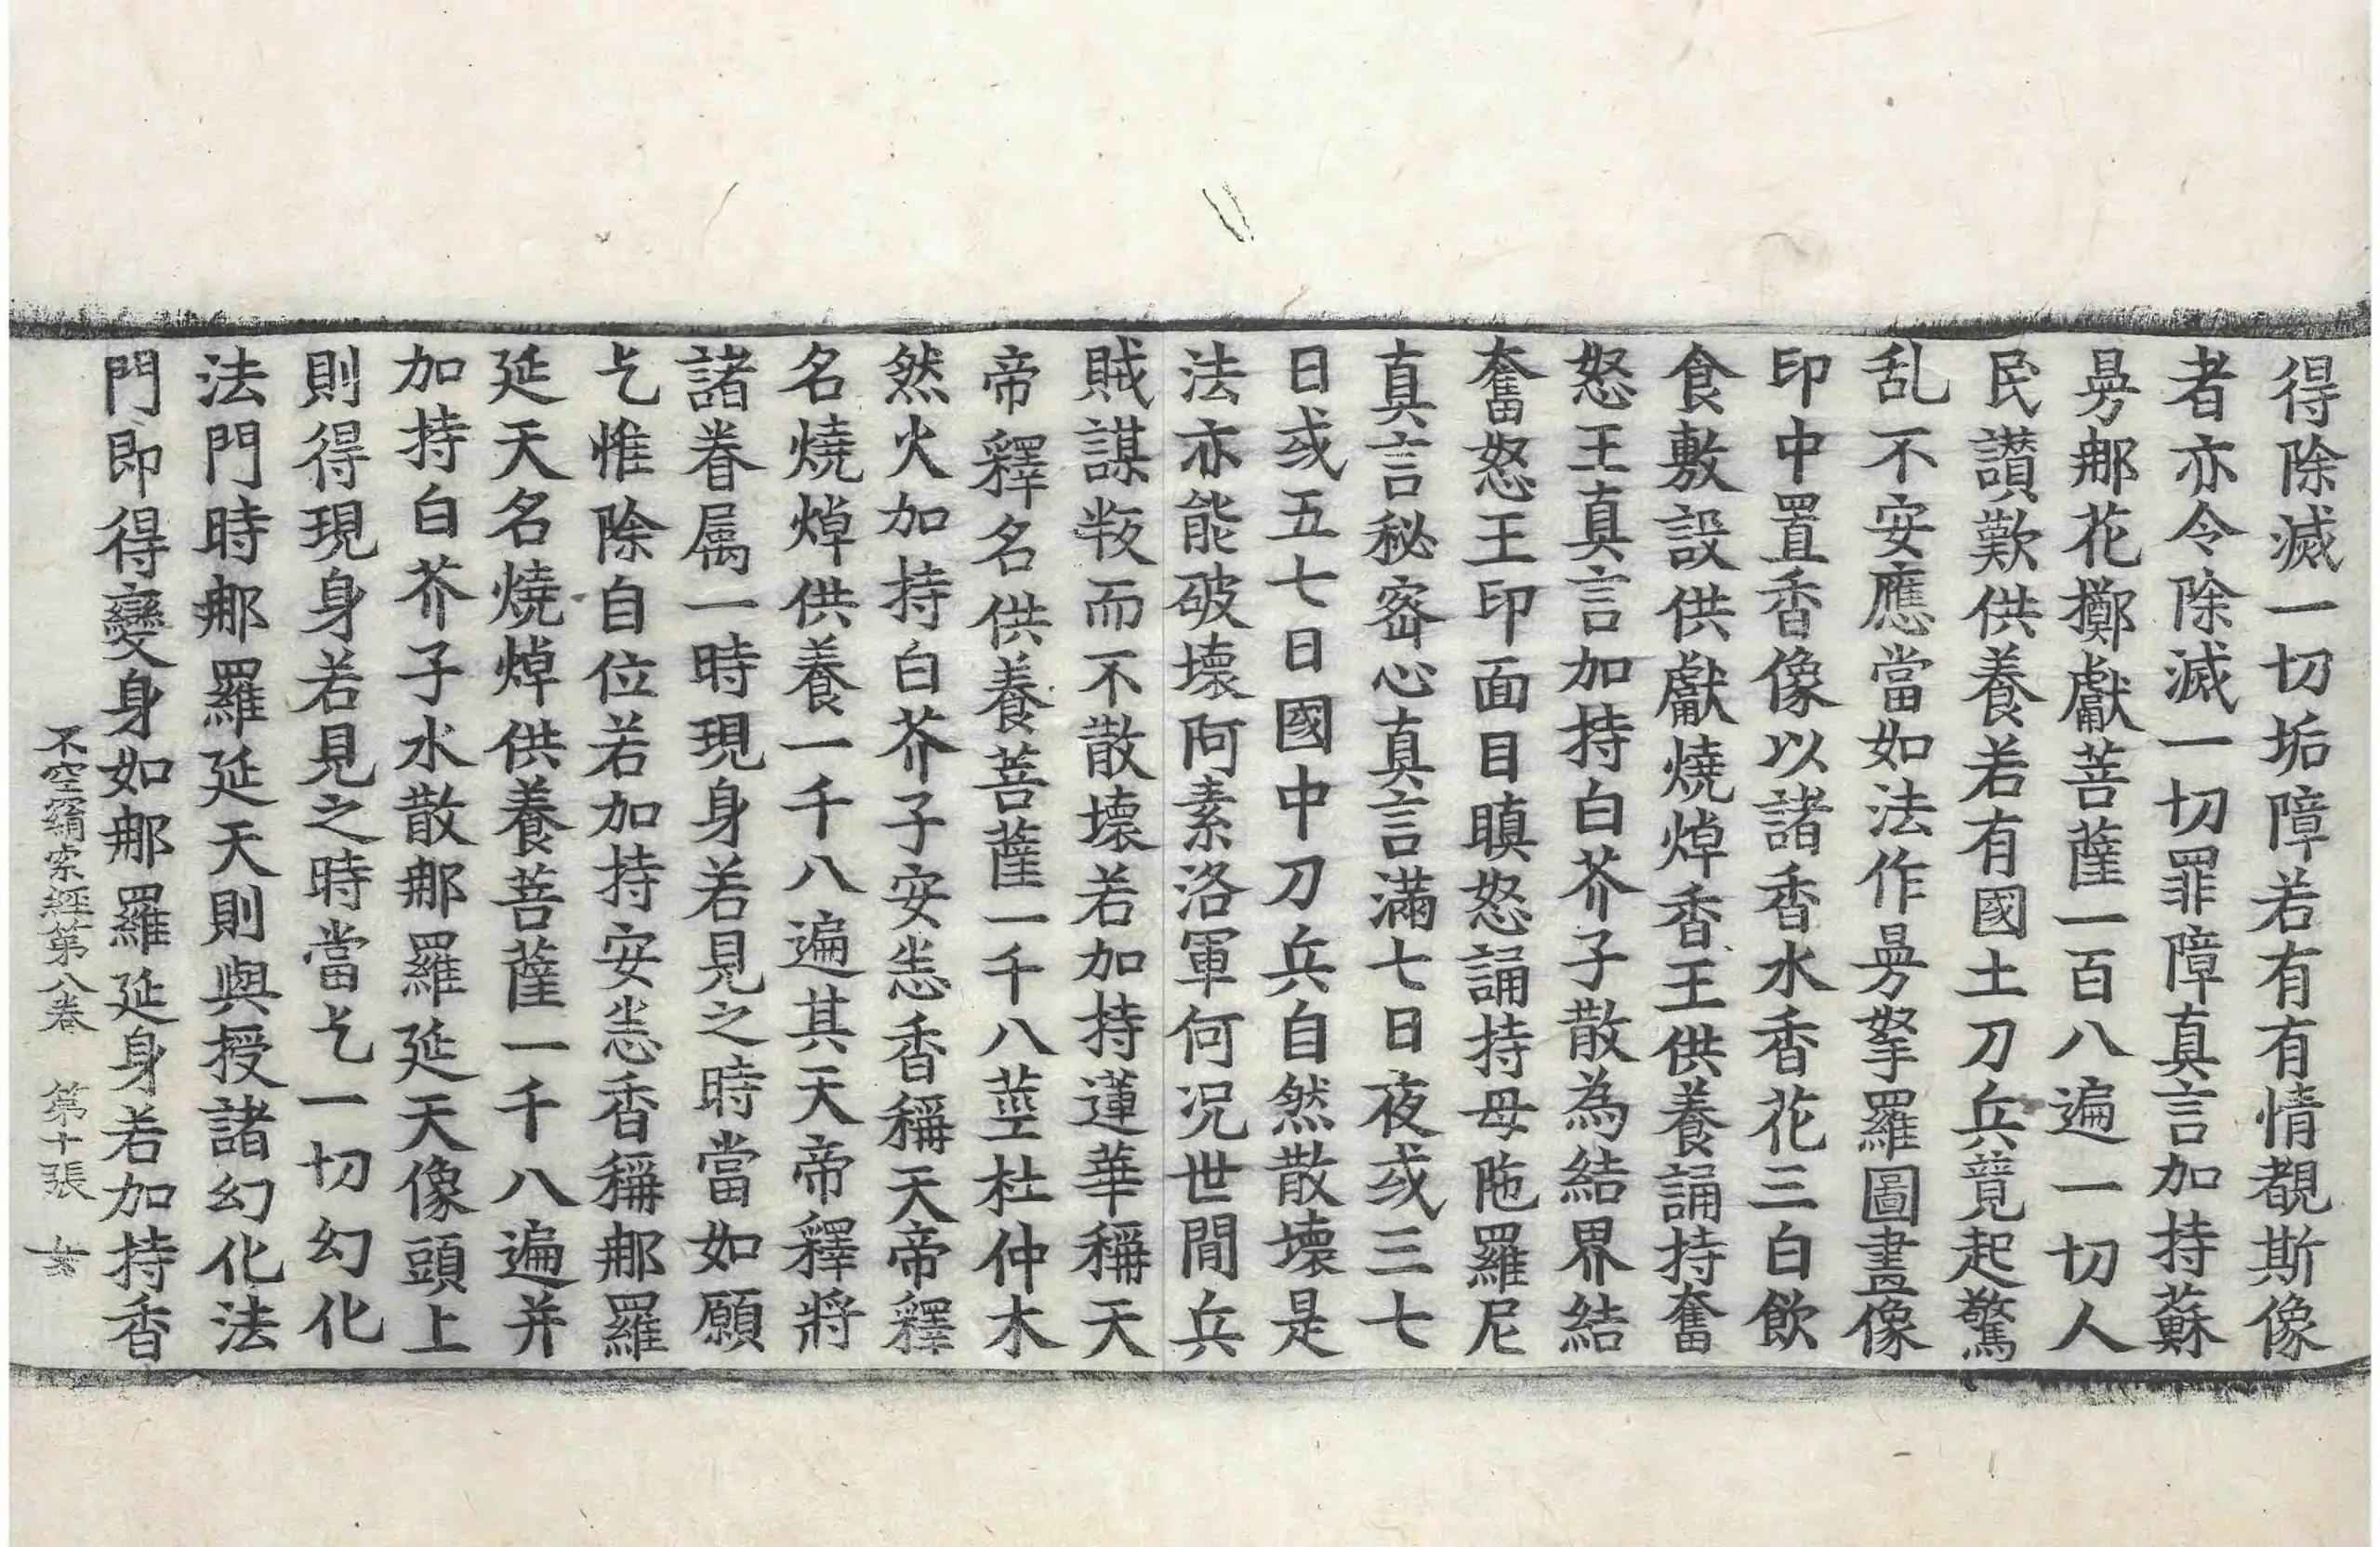 得除滅一切垢障若有有情覩斯像
者亦令除滅一切罪障真言加持蘇
㬅那花擲獻菩薩一百八遍一切人
民讃歎供養若有國土刀兵竟起驚
乱不安應當如法作㬅拏羅圖畫像
印中置香像以諸香水香花三白飲
食敷設供獻燒焯香王供養誦持奮
怒王真言加持白芥子散為結界結
奮怒王印面目瞋怒誦持母陁羅尼
真言秘密心真言滿七日夜或三七
日或五七日國中刀兵自然散壞是
法亦能破壞阿素洛軍何况世間兵
賊謀叛而不散壞若加持蓮華稱天
帝釋名供養菩薩一千八莖杜仲木
然火加持白芥子安悉香稱天帝釋
名燒焯供養一千八遍其天帝釋將
諸眷属一時現身若見之時當如願
乞惟除自位若加持安悉香稱那羅
延天名燒焯供養菩薩一千八遍并
加持白芥子水散那羅延天像頭上
則得現身若見之時當乞一切幻化
法門時那羅延天則與授諸幻化法
門即得變身如那羅延身若加持香
不空羂索經第八卷 第十張